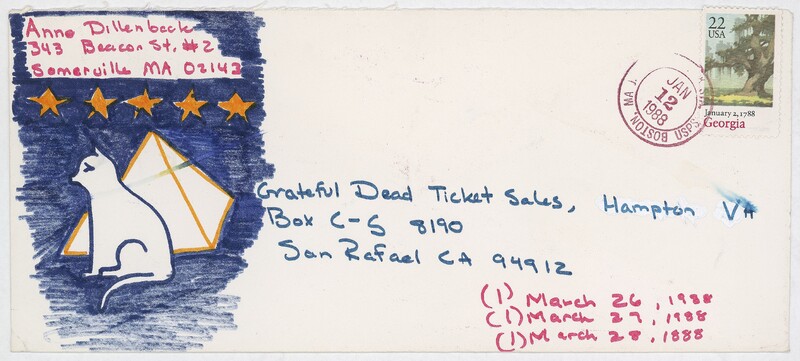 Anne Dillenback
343 Beacon St. #2
Somerville MA 02143
22
USA
January 2, 1788
Georgia
BOSTON, MA
JAN
12
1988
USPS
Grateful Dead Ticket Sales, Hampton VA
Box C-S 8190
San Rafael CA 94912
(1) March 26, 1988
(1) March 27, 1988
(1) March 28, 1888